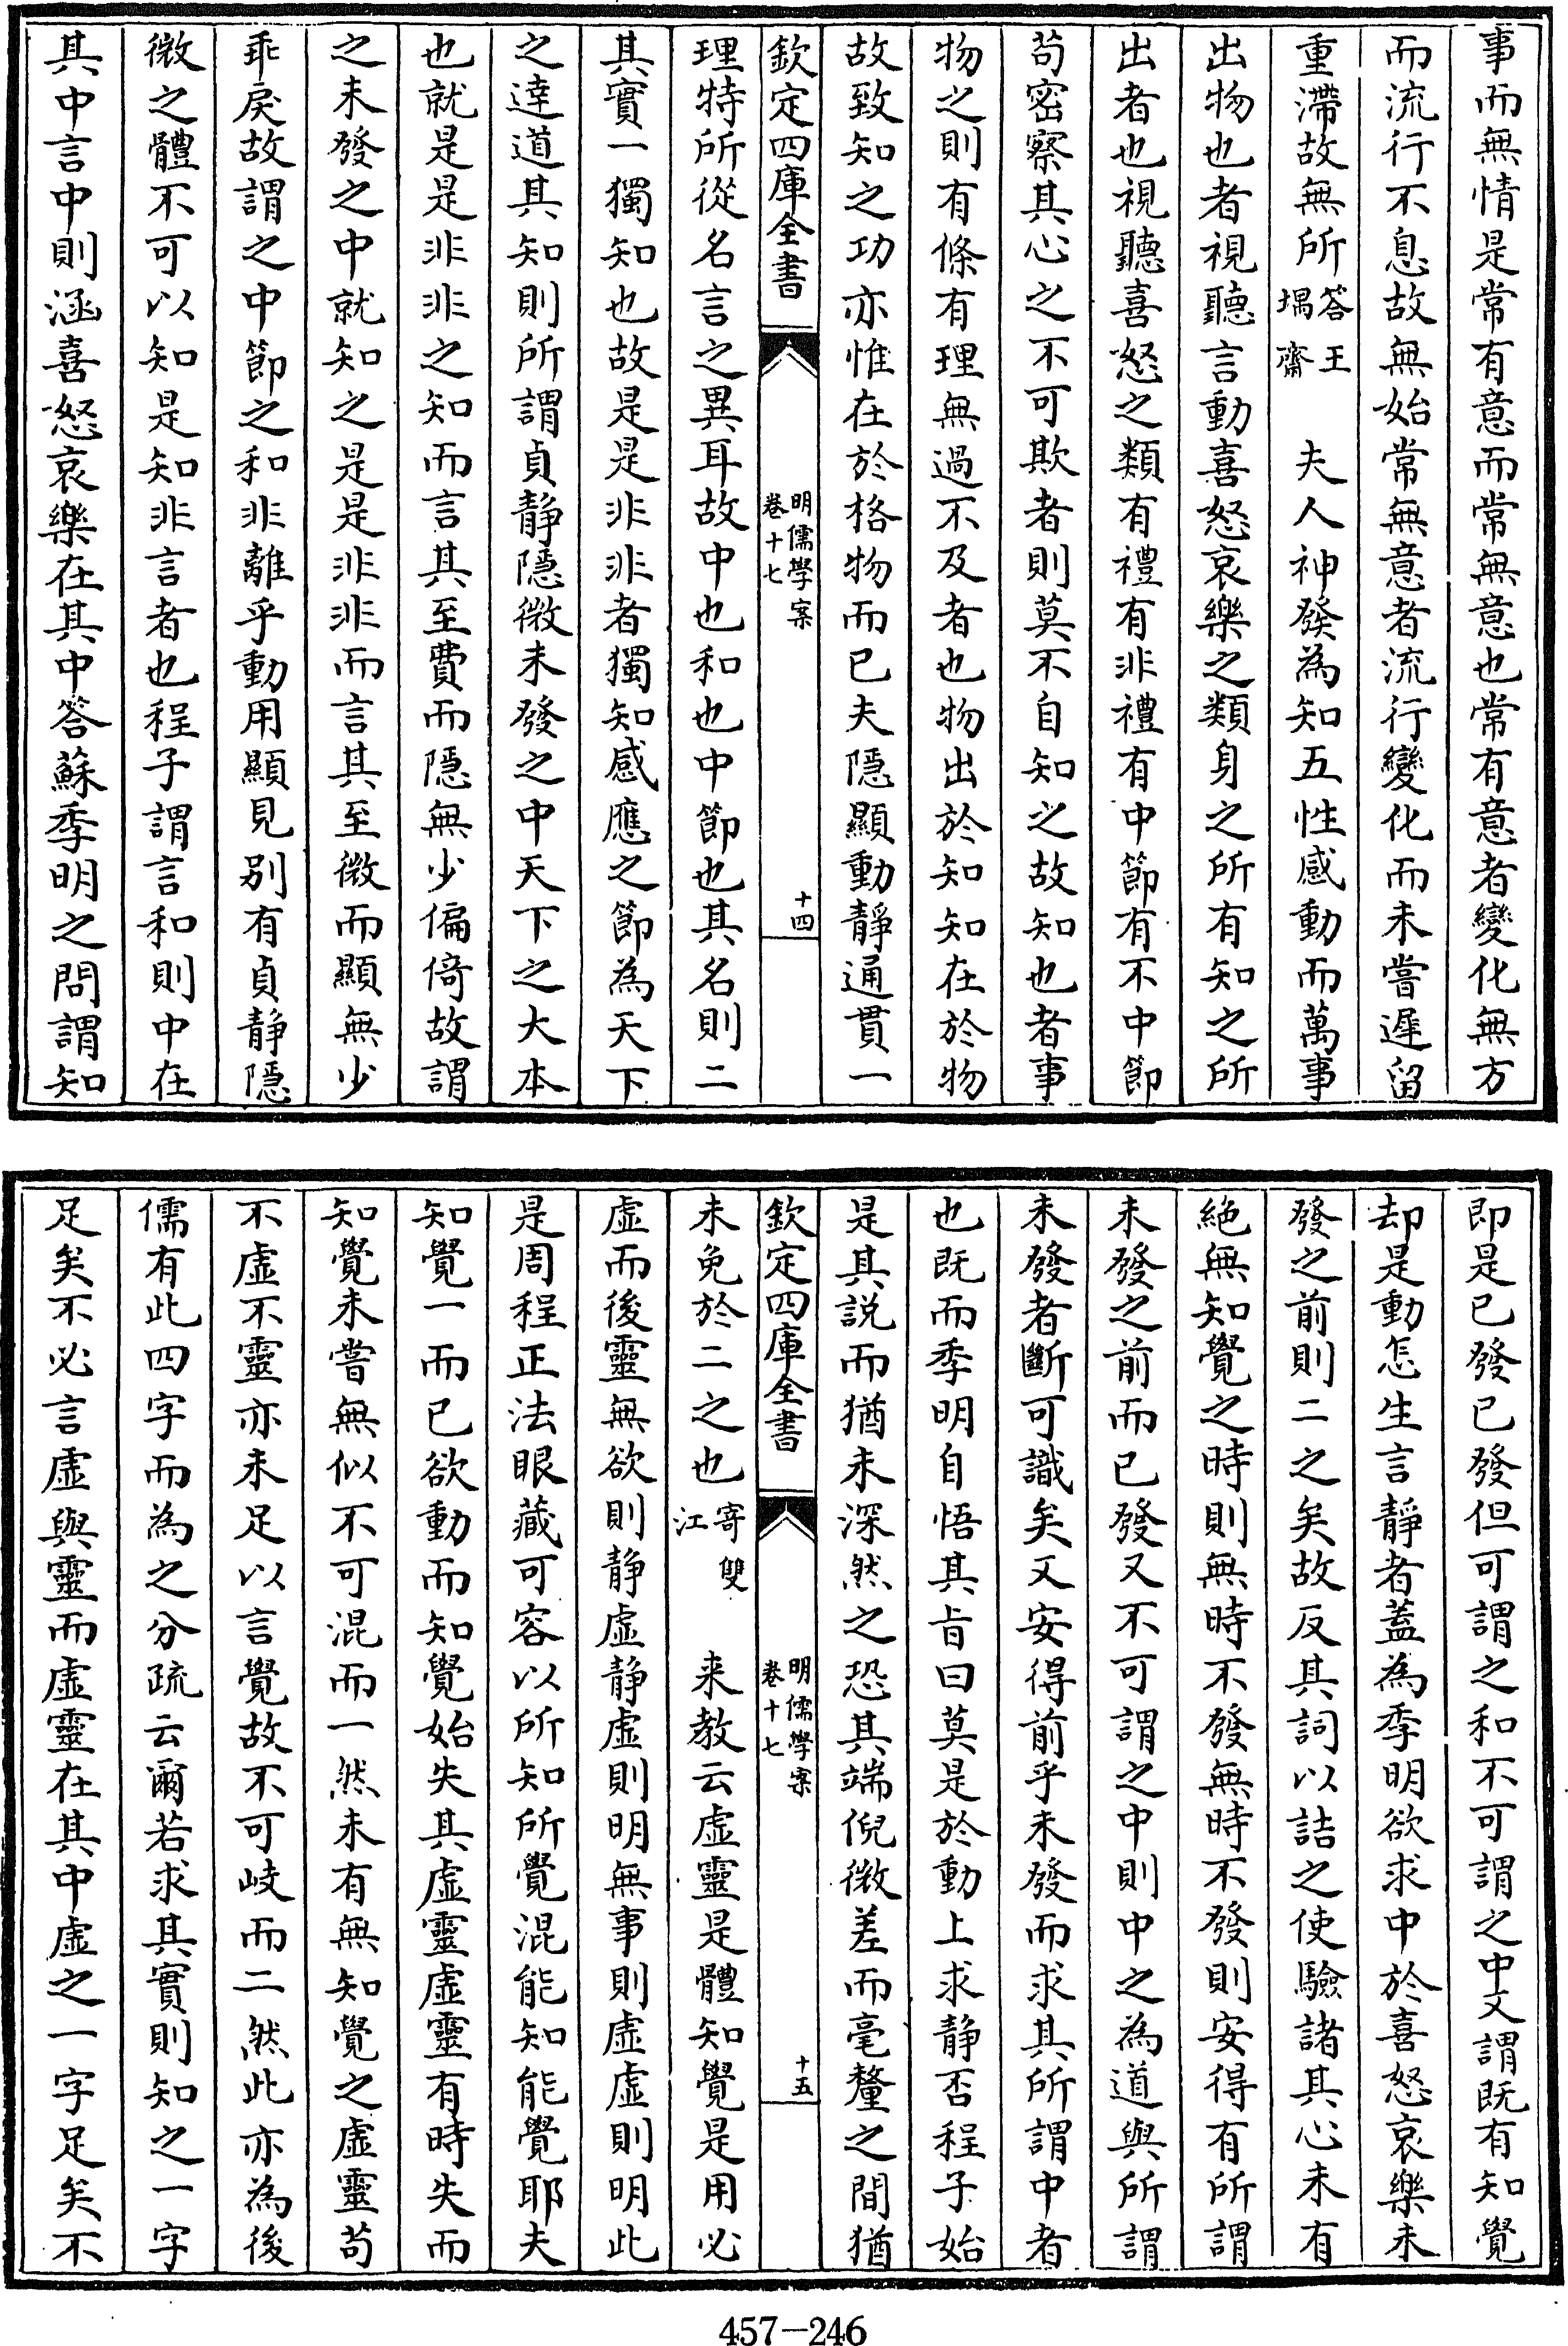 事而無情是常有意而常無意也常有意者變化無方
而流行不息故無始常無意者流行變化而未嘗遲留
重滯故無所答王堣齋　夫人神發為知五性感動而萬事
出物也者視聽言動喜怒哀樂之類身之所有知之所
出者也視聽喜怒之類有禮有非禮有中節有不中節
苟密察其心之不可欺者則莫不自知之故知也者事
物之則有條有理無過不及者也物出於知知在於物
故致知之功亦惟在於格物而已夫隱顯動靜通貫一
欽定四庫全書
明儒學案
卷十七
十四
理特所從名言之異耳故中也和也中節也其名則二
其實一獨知也故是是非非者獨知感應之節為天下
之達道其知則所謂貞靜隱微未發之中天下之大本
也就是是非非之知而言其至費而隱無少偏倚故謂
之未發之中就知之是是非非而言其至微而顯無少
乖戾故謂之中節之和非離乎動用顯見别有貞靜隱
微之體不可以知是知非言者也程子謂言和則中在
其中言中則涵喜怒哀樂在其中答蘇季明之問謂知
即是已發已發但可謂之和不可謂之中又謂既有知覺
却是動怎生言靜者蓋為季明欲求中於喜怒哀樂未
發之前則二之矣故反其詞以詰之使驗諸其心未有
絕無知覺之時則無時不發無時不發則安得有所謂
未發之前而已發又不可謂之中則中之為道與所謂
未發者斷可識矣又安得前乎未發而求其所謂中者
也既而季明自悟其旨曰莫是於動上求靜否程子始
是其說而猶未深然之恐其端倪微差而毫釐之間猶
欽定四庫全書
明儒學案
卷十七
十五
未免於二之也寄雙江　来教云虛靈是體知覺是用必
虛而後靈無欲則静虛静虛則明無事則虛虛則明此
是周程正法眼藏可容以所知所覺混能知能覺耶夫
知覺一而已欲動而知覺始失其虛靈虛靈有時失而
知覺未嘗無似不可混而一然未有無知覺之虛靈苟
不虛不靈亦未足以言覺故不可岐而二然此亦為後
儒有此四字而為之分疏云爾若求其實則知之一字
足矣不必言虛與靈而虛靈在其中虛之一字足矣不
457—246